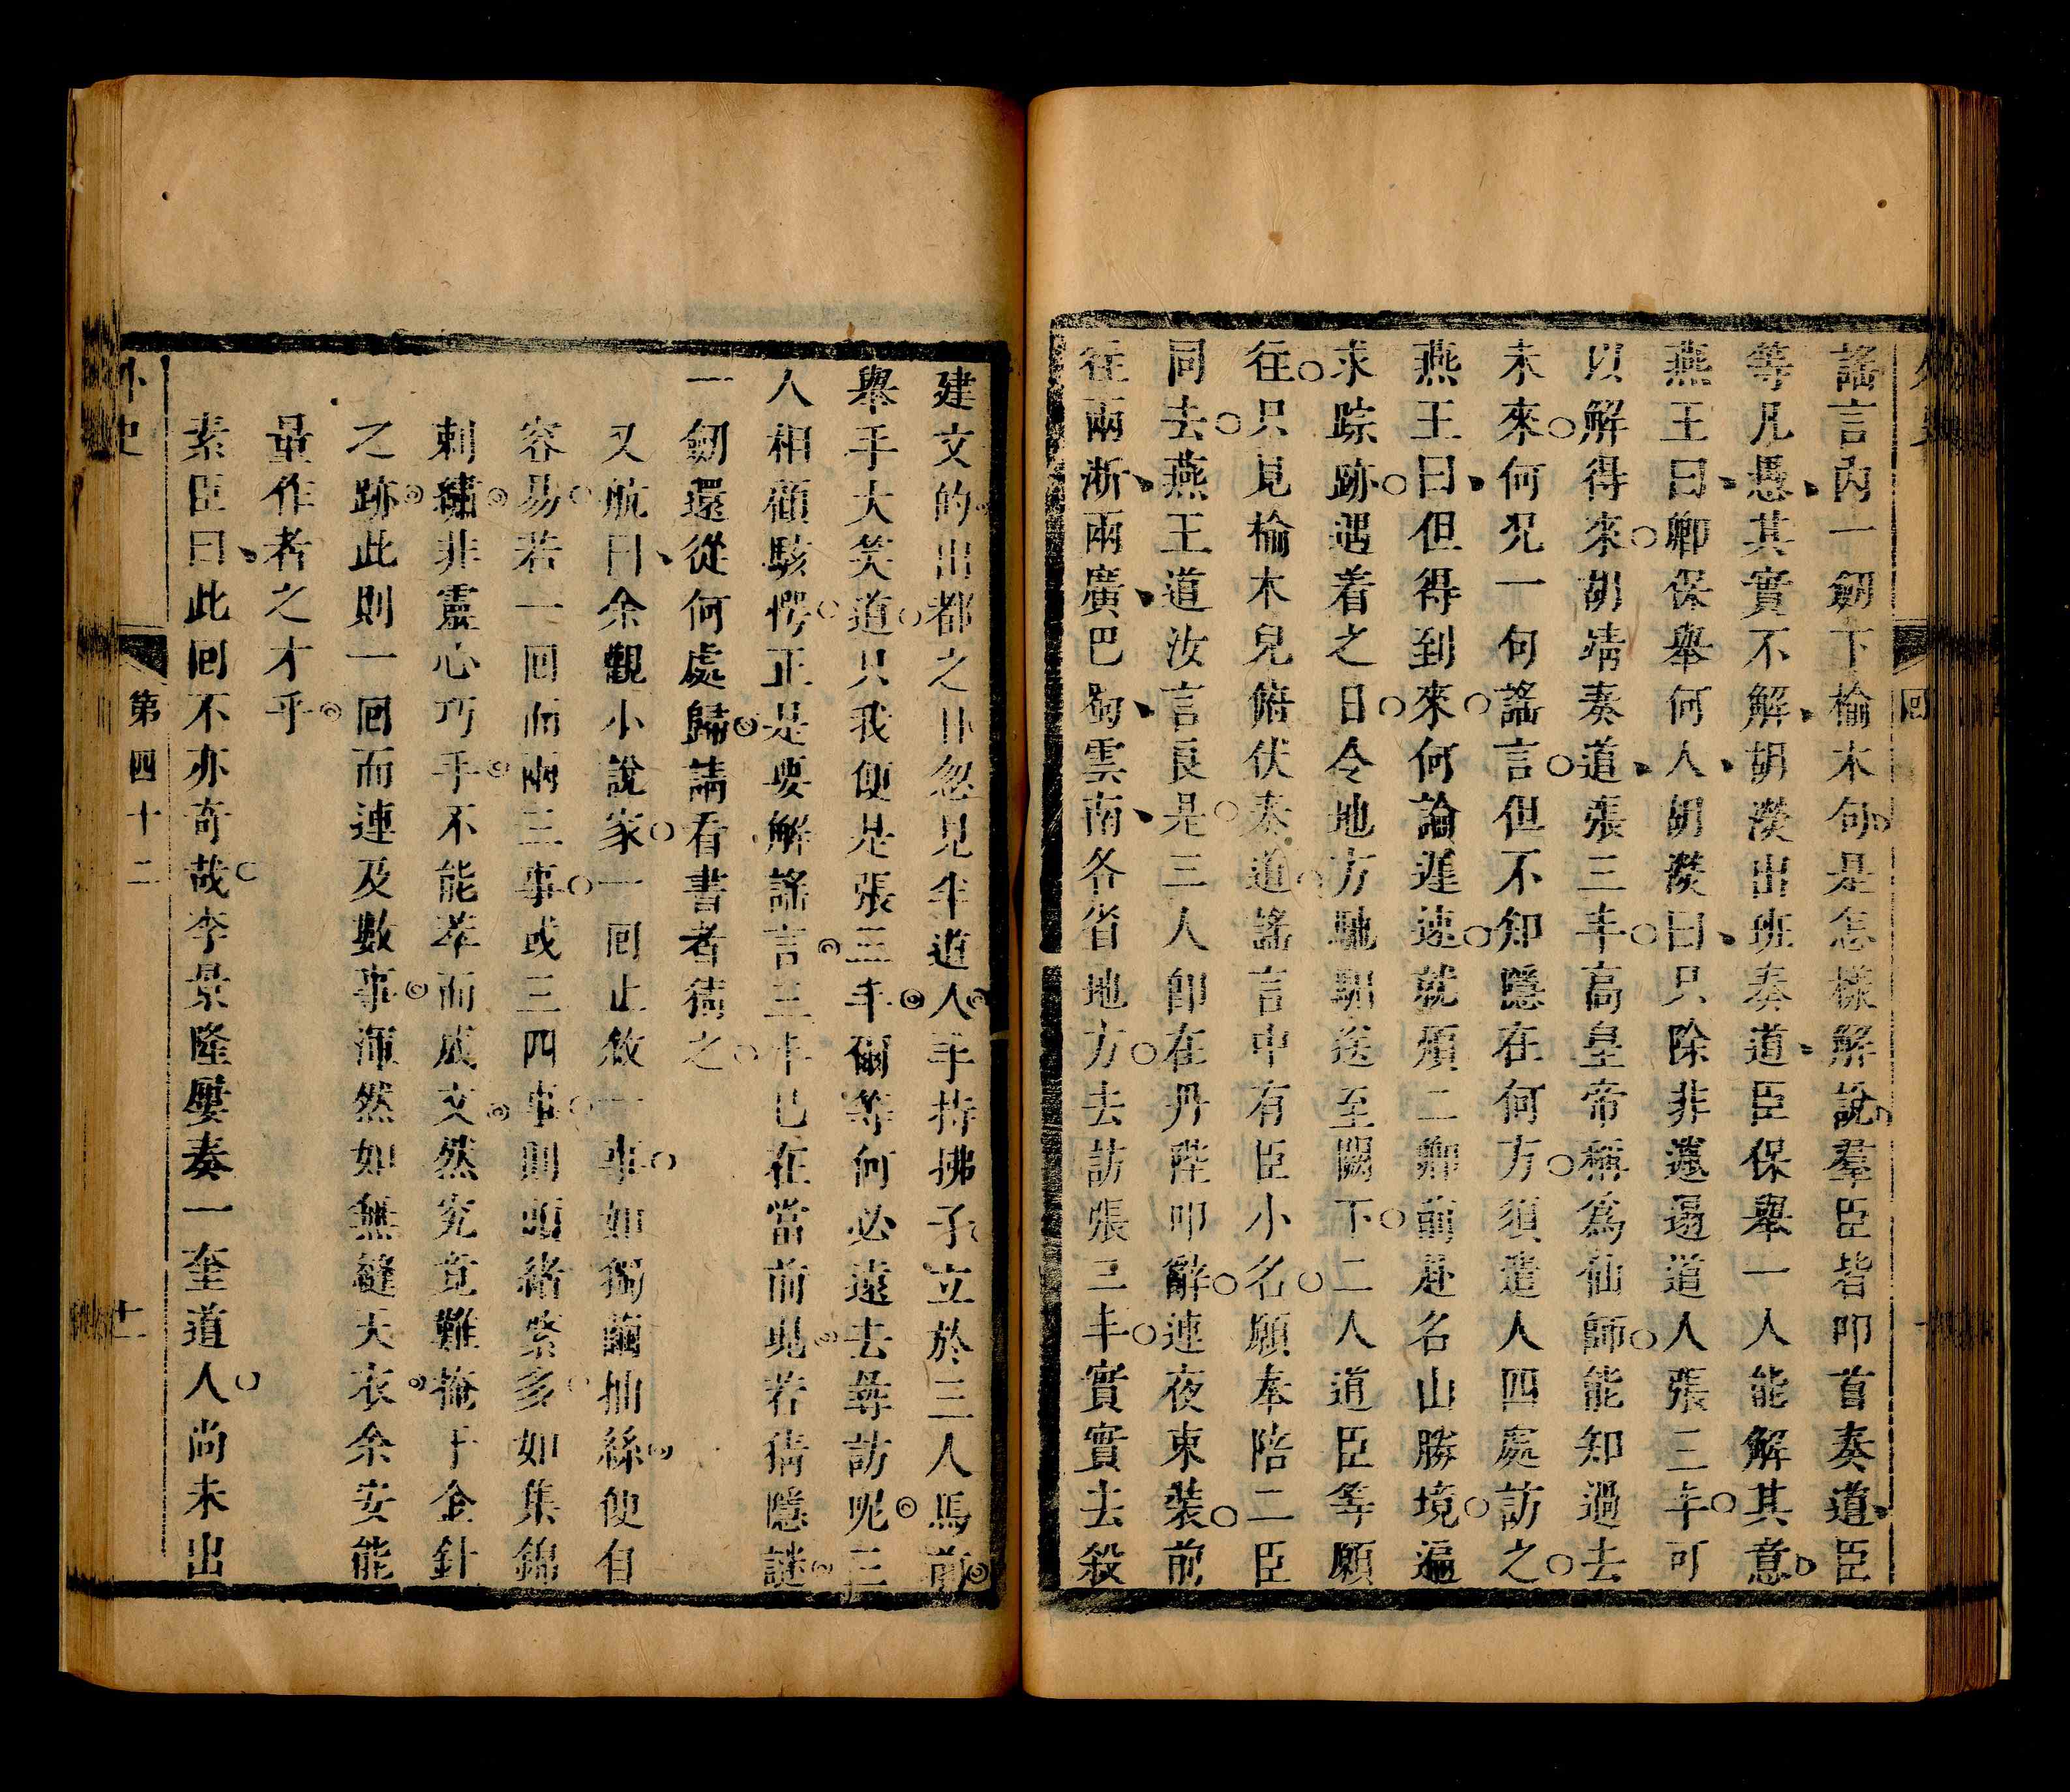 謠言內一劒下榆木句是怎樣解說羣臣皆叩首奏道臣
等凡愚其實不解胡濙出班奏道臣保舉一人能解其意
燕王曰卿保舉何人胡濙曰只除非邋遢道人張三丰可
以解得來胡靖奏道張三丰高皇帝稱爲仙師能知過去
未來何况一句謠言但不知隱在何方須遣人四處訪之
燕王曰但得到來何論遲速就煩二卿前赴名山勝境遍
求踪跡遇着之日令地方馳驲送至闕下二人道臣等願
往只見榆木兒俯伏奏道謠言中有臣小名願奉陪二臣
同去燕王道汝言良是三人卽在丹陛叩辭連夜束裝前
往兩浙兩廣巴蜀雲南各省地方去訪張三丰實實去殺
建文的出都之日忽見半道人手持拂子立於三人馬前
舉手大笑道只我便是張三丰爾等何必遠去尋訪呢三
人相顧駭愕正是要解謠言三丰已在當前現若猜隱謎
一劒還從何處歸請看書者猜之
又航曰余觀小說家一回止敘一事如獨繭抽絲便自
容易若一回而兩三事或三四事則頭緒紊多如集錦
刺繡非靈心巧手不能萃而成文然究竟難掩于金針
之跡此則一回而連及數事渾然如無縫天衣余安能
量作者之才乎
素臣曰此回不亦奇哉李景隆屢奏一奎道人尚未出
外史
第四十二
十一
回